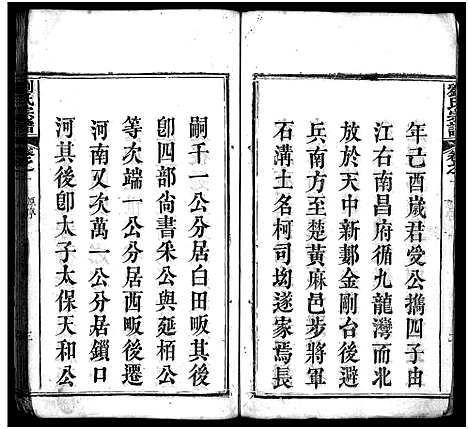 劉氏宗譜
年己酉歲君愛公攜四子由
江右南昌府循九龍灣而北
放於天中新鄭金剛台後避
兵南方至楚黃麻邑步將軍
石溝土名柯司坳遂家焉長
嗣千一公分居白田畈其後
卽四部尙書采公與延栢公
等次端一公分居西畈後遷
河南又次萬一公分居鎖口
河其後卽太子太保天和公
劉氏宗譜